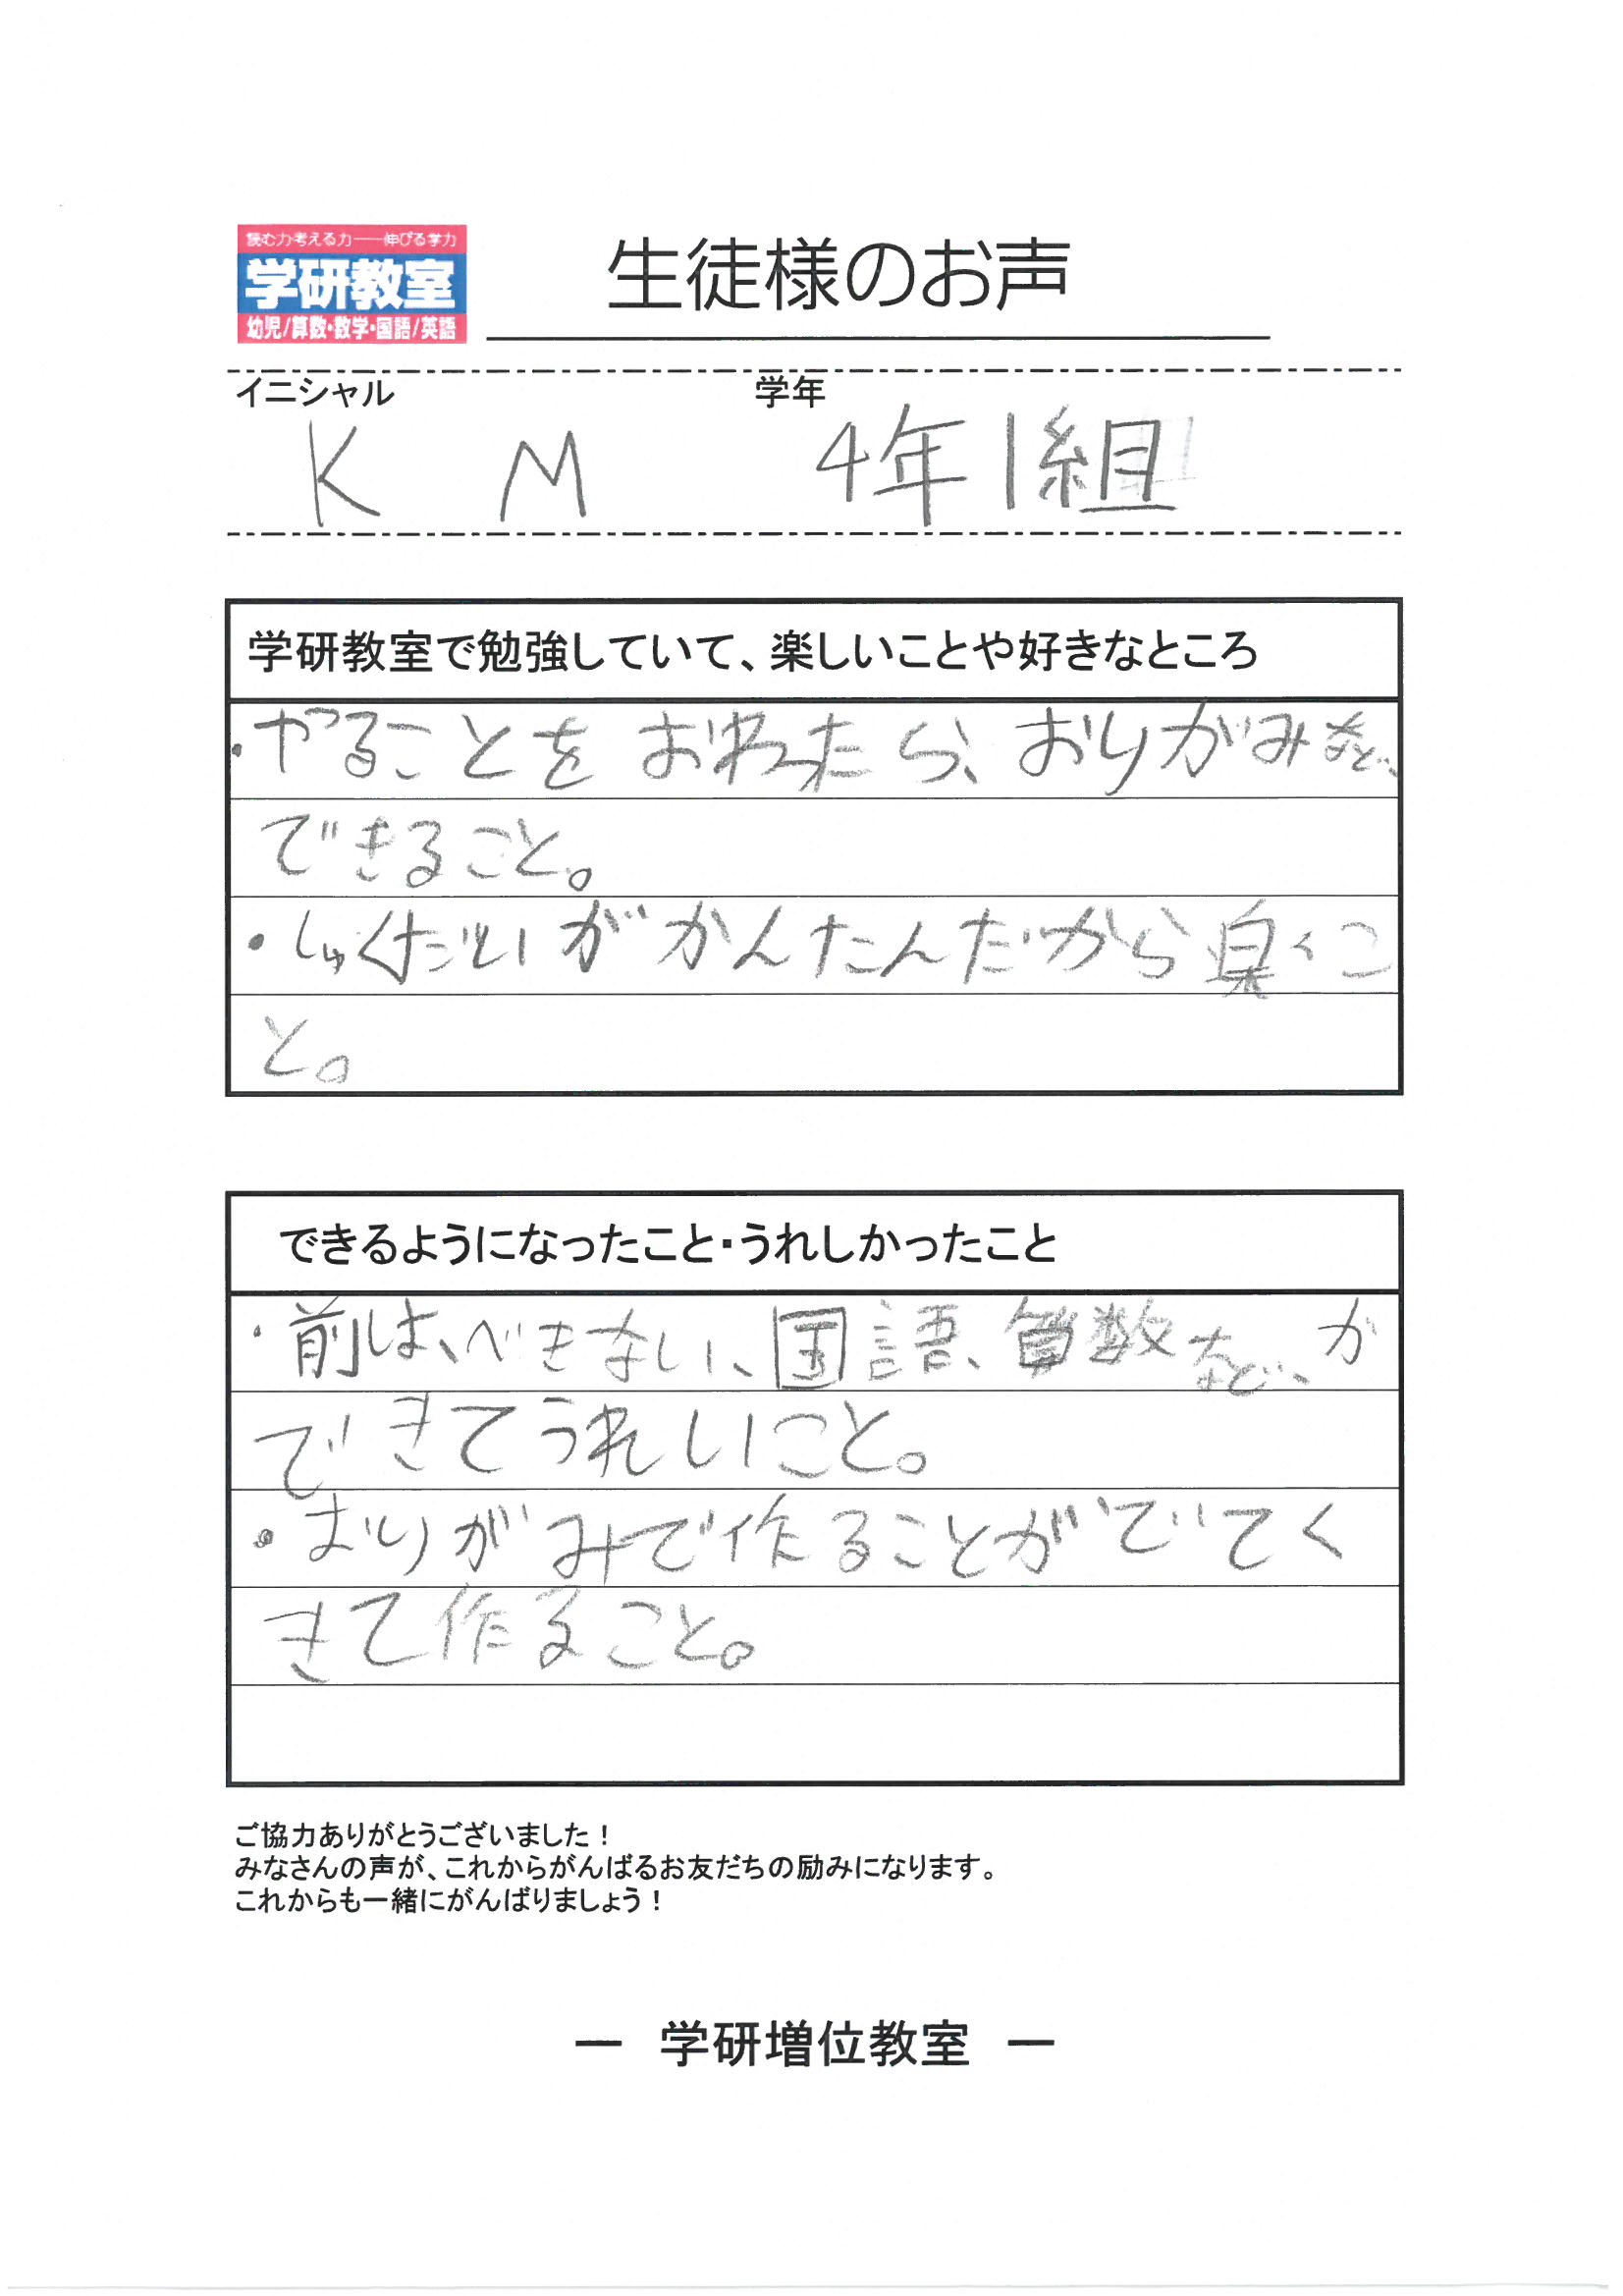 読む力考える力――伸びる学力
学研教室
幼児/算数・数学・国語/英語
生徒様のお声
イニシャル 学年
K M 4年1組
学研教室で勉強していて、楽しいことや好きなところ
・やることをおわったら、おりがみなど、
できること。
・しゅくだいがかんたんだから楽くこ
と。
できるようになったこと・うれしかったこと
・前は、べきない、国語、算数など、が
できてうれしいこと。
・おりがみで作ることがでてく
きて作ること。
ご協力ありがとうございました！
みなさんの声が、これからがんばるお友だちの励みになります。
これからも一緒にがんばりましょう！
― 学研増位教室 ―